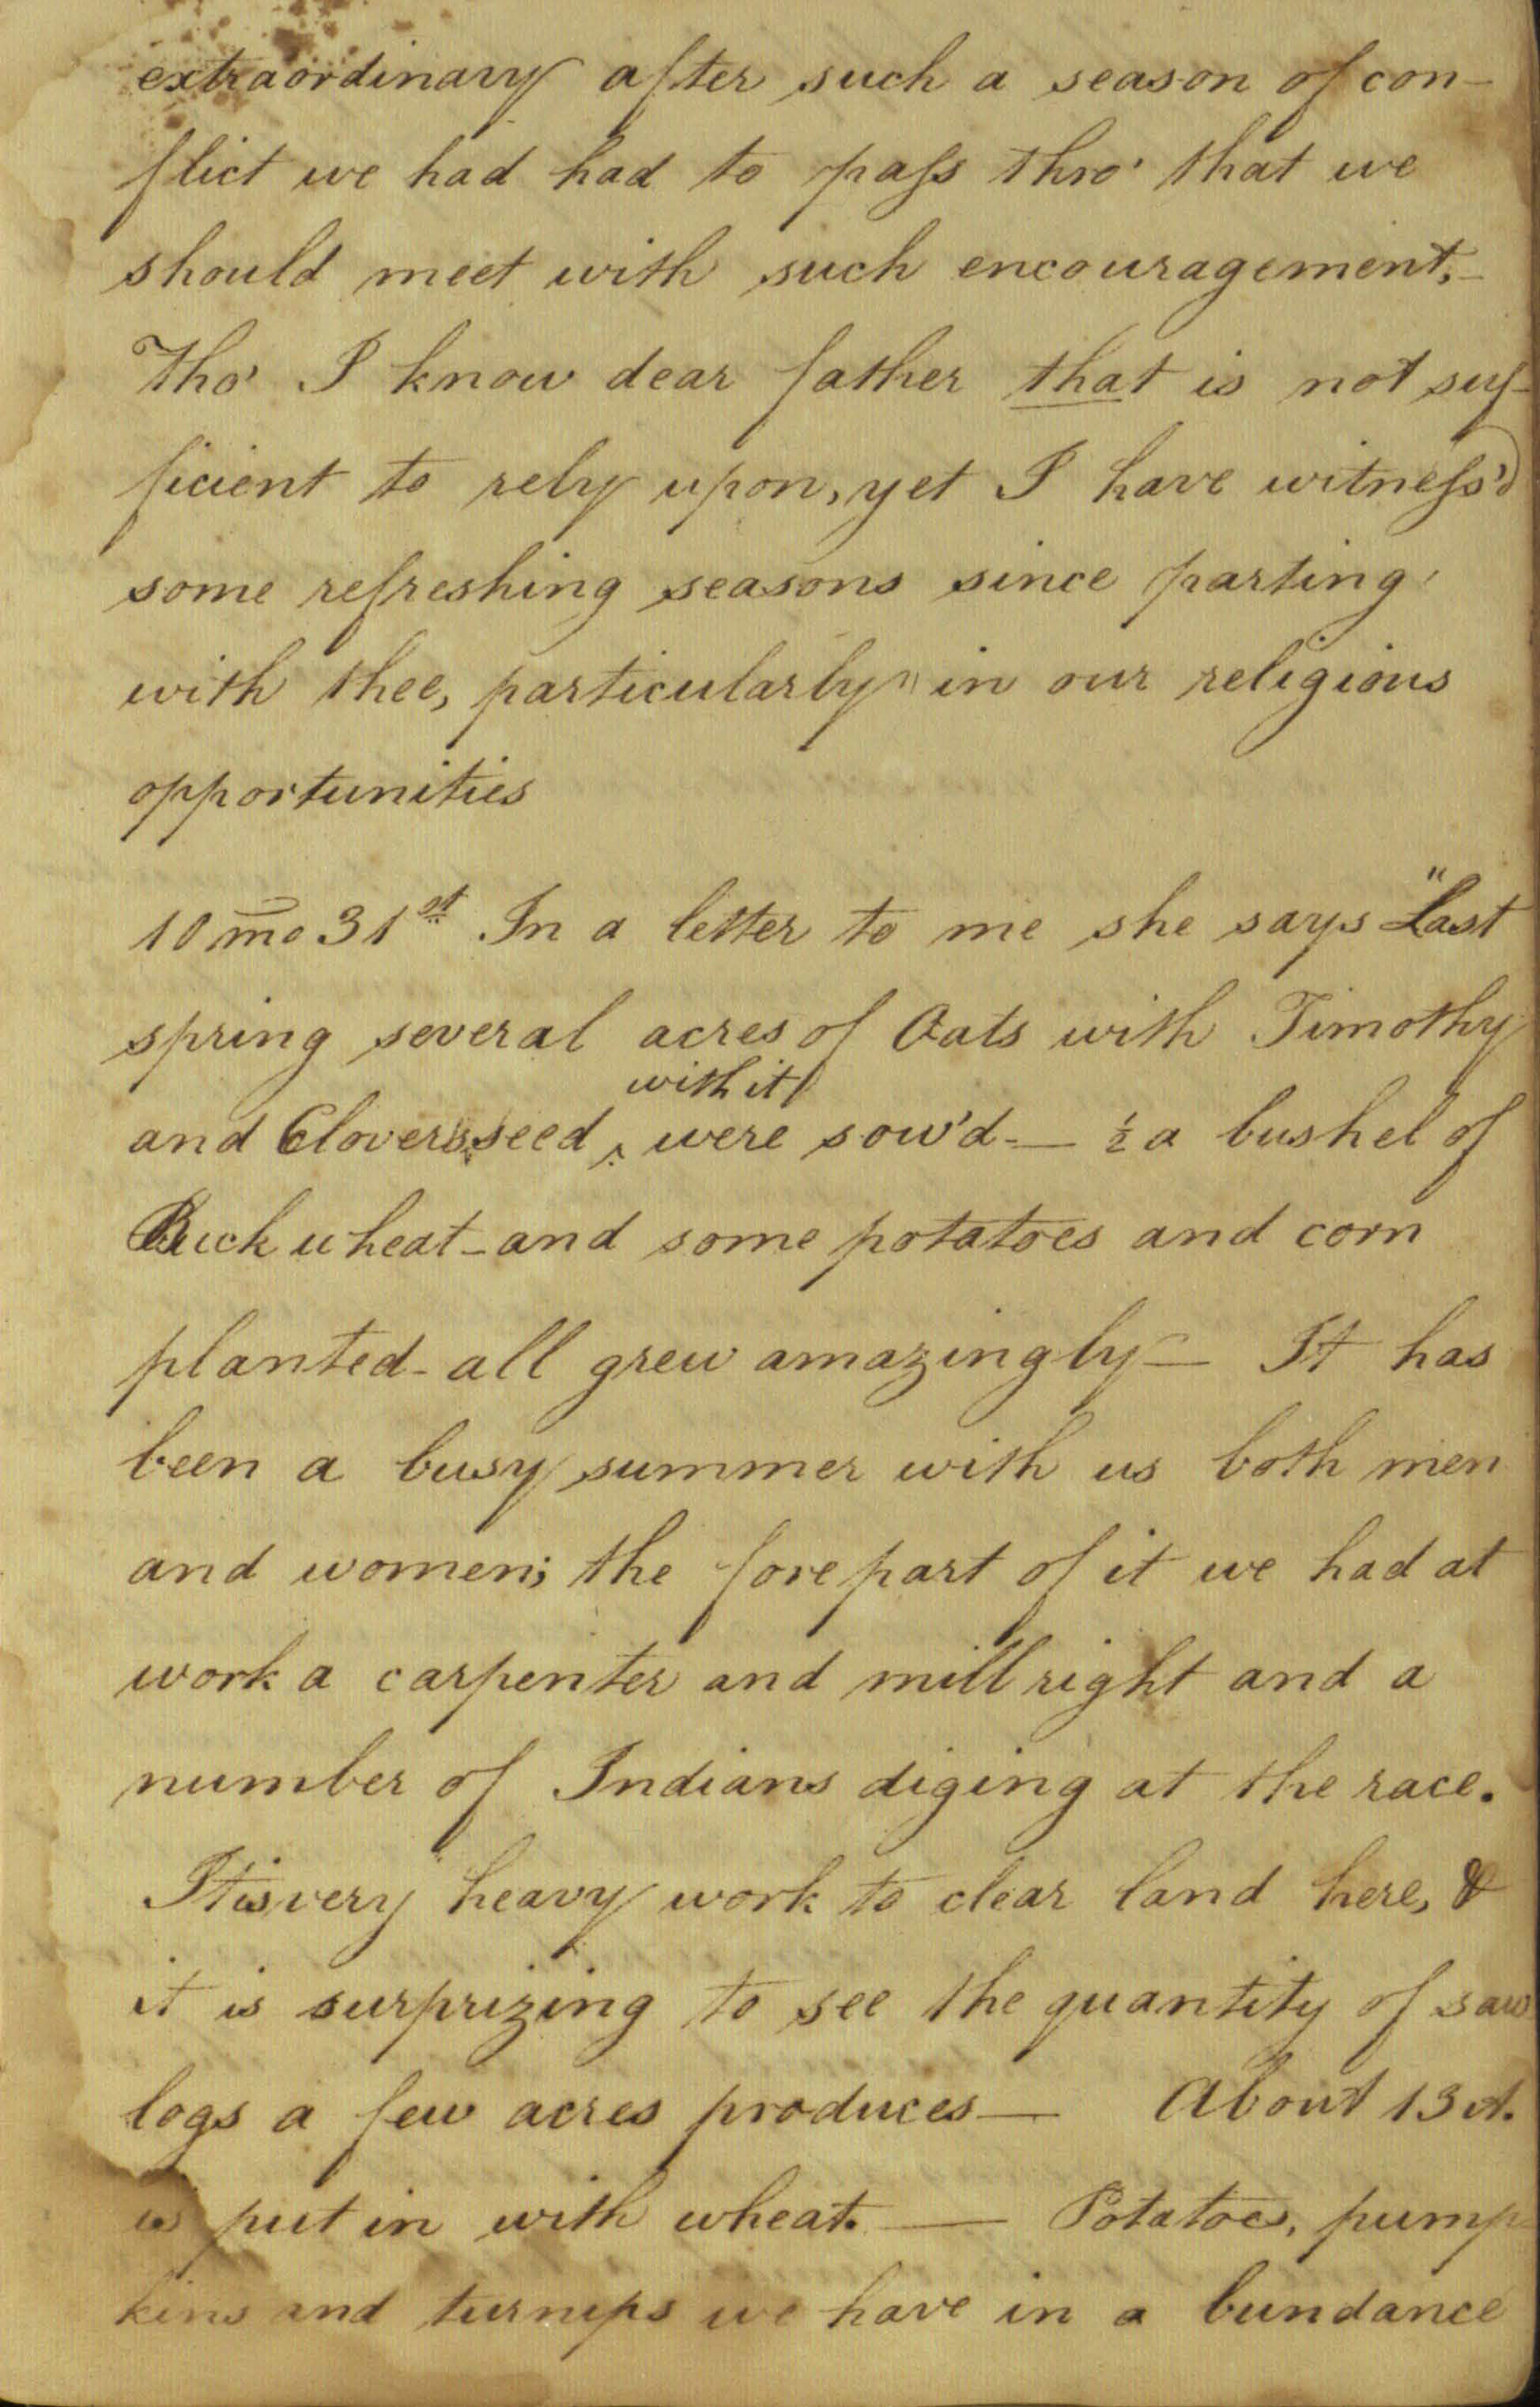 extraordinary after such a season of con-
flict we had had to paſs thro' that we
should meet with such encouragement,-
Tho' I know dear father that is not suf-
ficient to rely upon, yet I have witneſs'd
some refreshing seasons since parting
with thee, particularly in our religious
opportunities
10 mo 31st In a letter to me she says "Last
spring several acres of Oats with Timothy
with it
and Clovers seed ‸ were sow'd - — ½ a bushel of
Buckwheat - and some potatoes and corn
planted - all grew amazingly — It has
been a busy summer with us both men
and women; the forepart of it we had at
work a carpenter and mill right and a
number of Indians diging at the race.
It is very heavy work to clear land here, &
it is surprizing to see the quantity of saw
logs a few acres produces — About 13 A.
is put in with wheat. — Potatoes, pump-
kins and turnips we have in a bundance